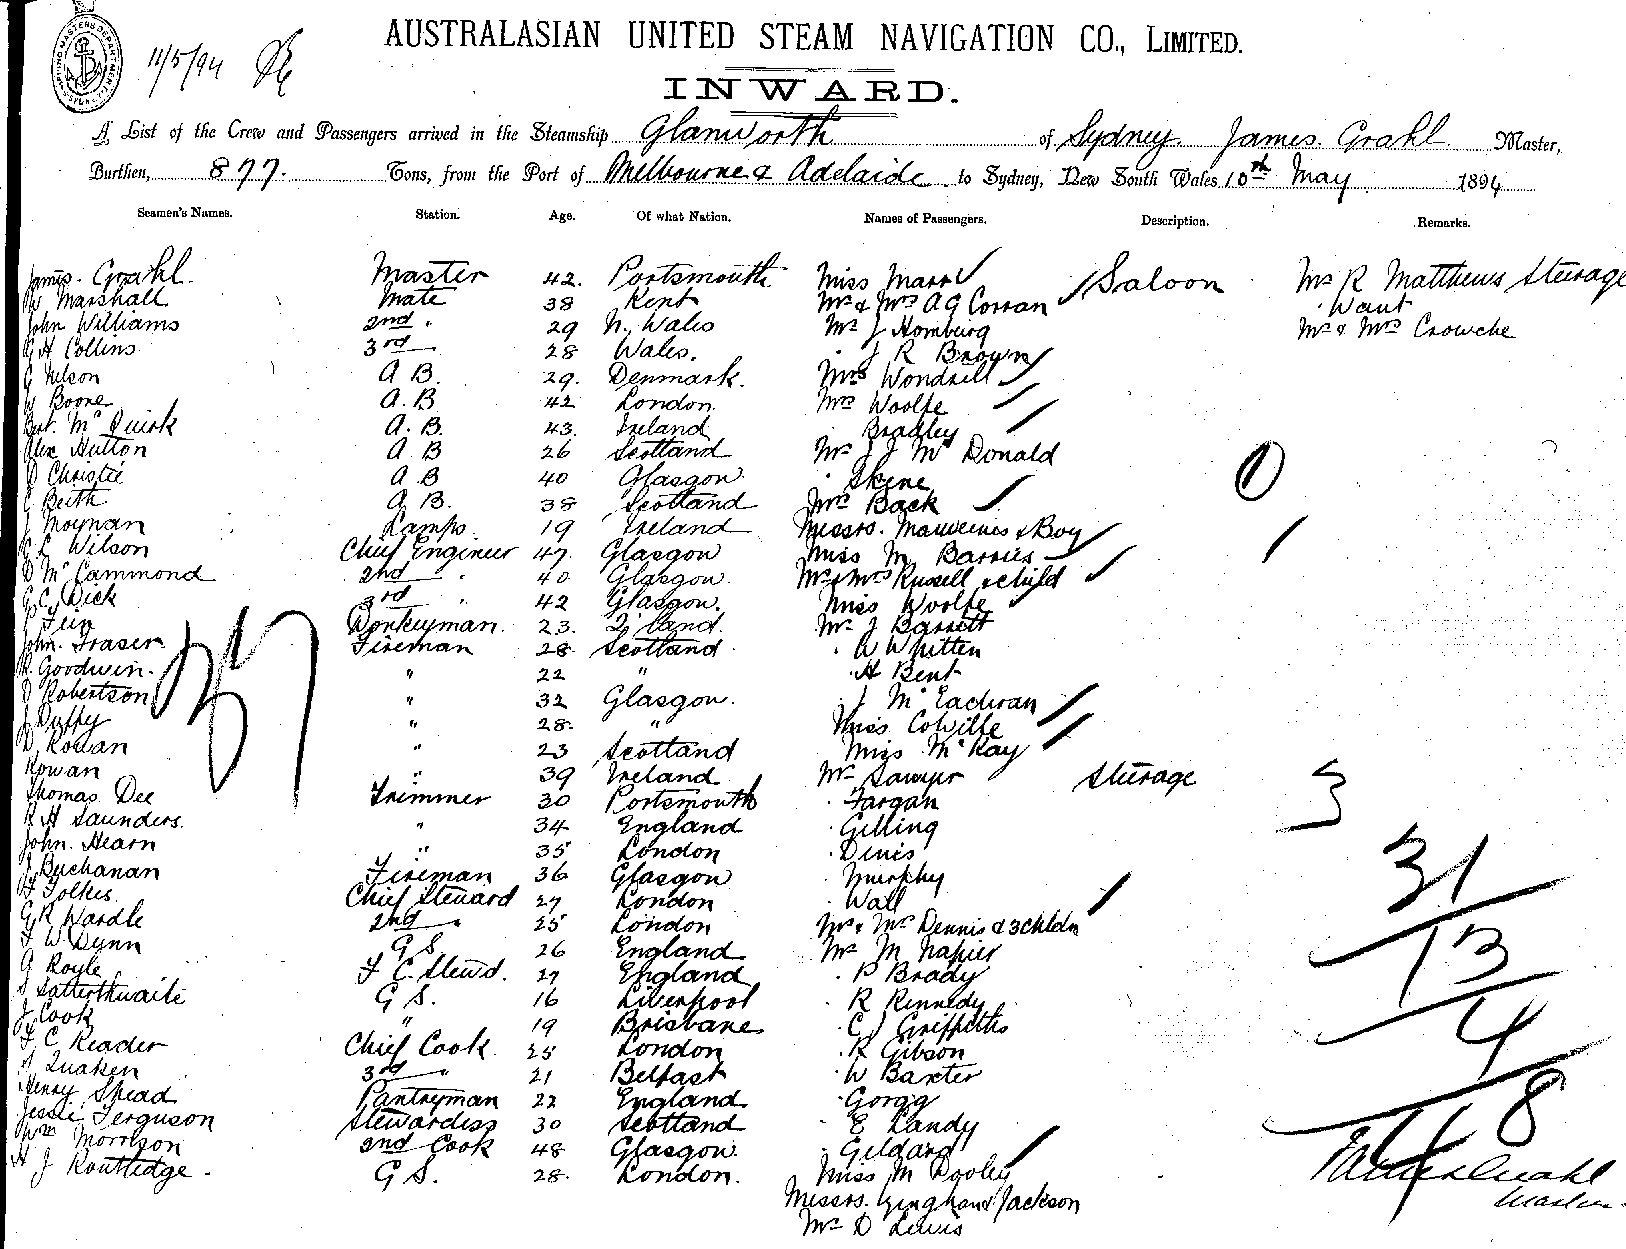 11/5/94
AUSTRALASIAN UNITED STEAM NAVIGATION CO., LIMITED.
INWARD.
A List of the Crew and Passengers arrived in the Steamship Glanworth of Sydney James Grahl Master,
Burthen, 877. Tons, from the Port of Melbourne & Adelaide to Sydney, New South Wales 10th May 1894
Seamen's Names. Station. Age. Of what Nation. Names of Passengers. Description. Remarks.
James Grahl Master 42. Portsmouth Miss Marr Saloon Mr R Matthews Steerage
W Marshall Mate 38 Kent Mr & Mrs A G Corran " Want
John Williams 2nd " 29 N. Wales Mr J Homburg Mr & Mrs Crowche
G H Collins 3rd 28 Wales. " J R Brown
C Nelson A B. 29. Denmark. Mrs Wondrell
W Boone A. B 42 London. Mrs Woolfe
Robt. McQuirk A. B. 43. Ireland Bradley
Alex Hutton A B 26 Scotland Mr J J McDonald
D Christie A B 40 Glasgow. " Skene
C Beith A B. 38 Scotland Mrs Back
J Moynan Lamps 19 Ireland Messrs. & Boy
C L Wilson Chief Engineer 47. Glasgow Miss M Barries
D McCammond 2nd " 40 Glasgow. Mr & Mrs Russell & child
G C Dick 3rd " 42 Glasgow. Miss Woolfe
Donkeyman. 23. Mr J Barrett
John. Fraser Fireman 28 Scotland " W Whitten
R. Goodwin. " 22 " " H Bent
D Robertson " 32 Glasgow. " J McEachran
J Duffy " 28. " Miss Colville
D. Rowan " 23 Scotland Miss McKay
Rowan " 39 Ireland Mr Sawyer Steerage 3
Thomas Dee Trimmer 30 Portsmouth " Fargan
R H Saunders. " 34 England " Gilling
John. Hearn " 35 London " Denis
J Buchanan Fireman 36 Glasgow Murphy 31
F Folkes Chief Steward 27 London " Wall
G R Wardle 2nd " 25 London Mr & Mrs Dennis & 3 chldn
F W Dynn G S 26 England Mr M Napier 13
G Royle F C Stewd. 27 England " P Brady
S Satterthwaite G S. 16 Liverpool " R Kennedy
J Cook " 19 Brisbane " C J Griffiths 4
F C Reader Chief Cook 25 London " R Gibson
A Quaken 3rd " 21 Belfast " W Baxter
Henry Spead Pantryman 22 England " Gorgg 18
Jessie Ferguson Stewardess 30 Scotland " E Landy
Wm Morrison 2nd Cook 48 Glasgow. " Geldard
H J Routledge. G S. 28. London. Miss M Pooley James Grahl
Messrs. & Jackson Master
Mr D Lewis
37